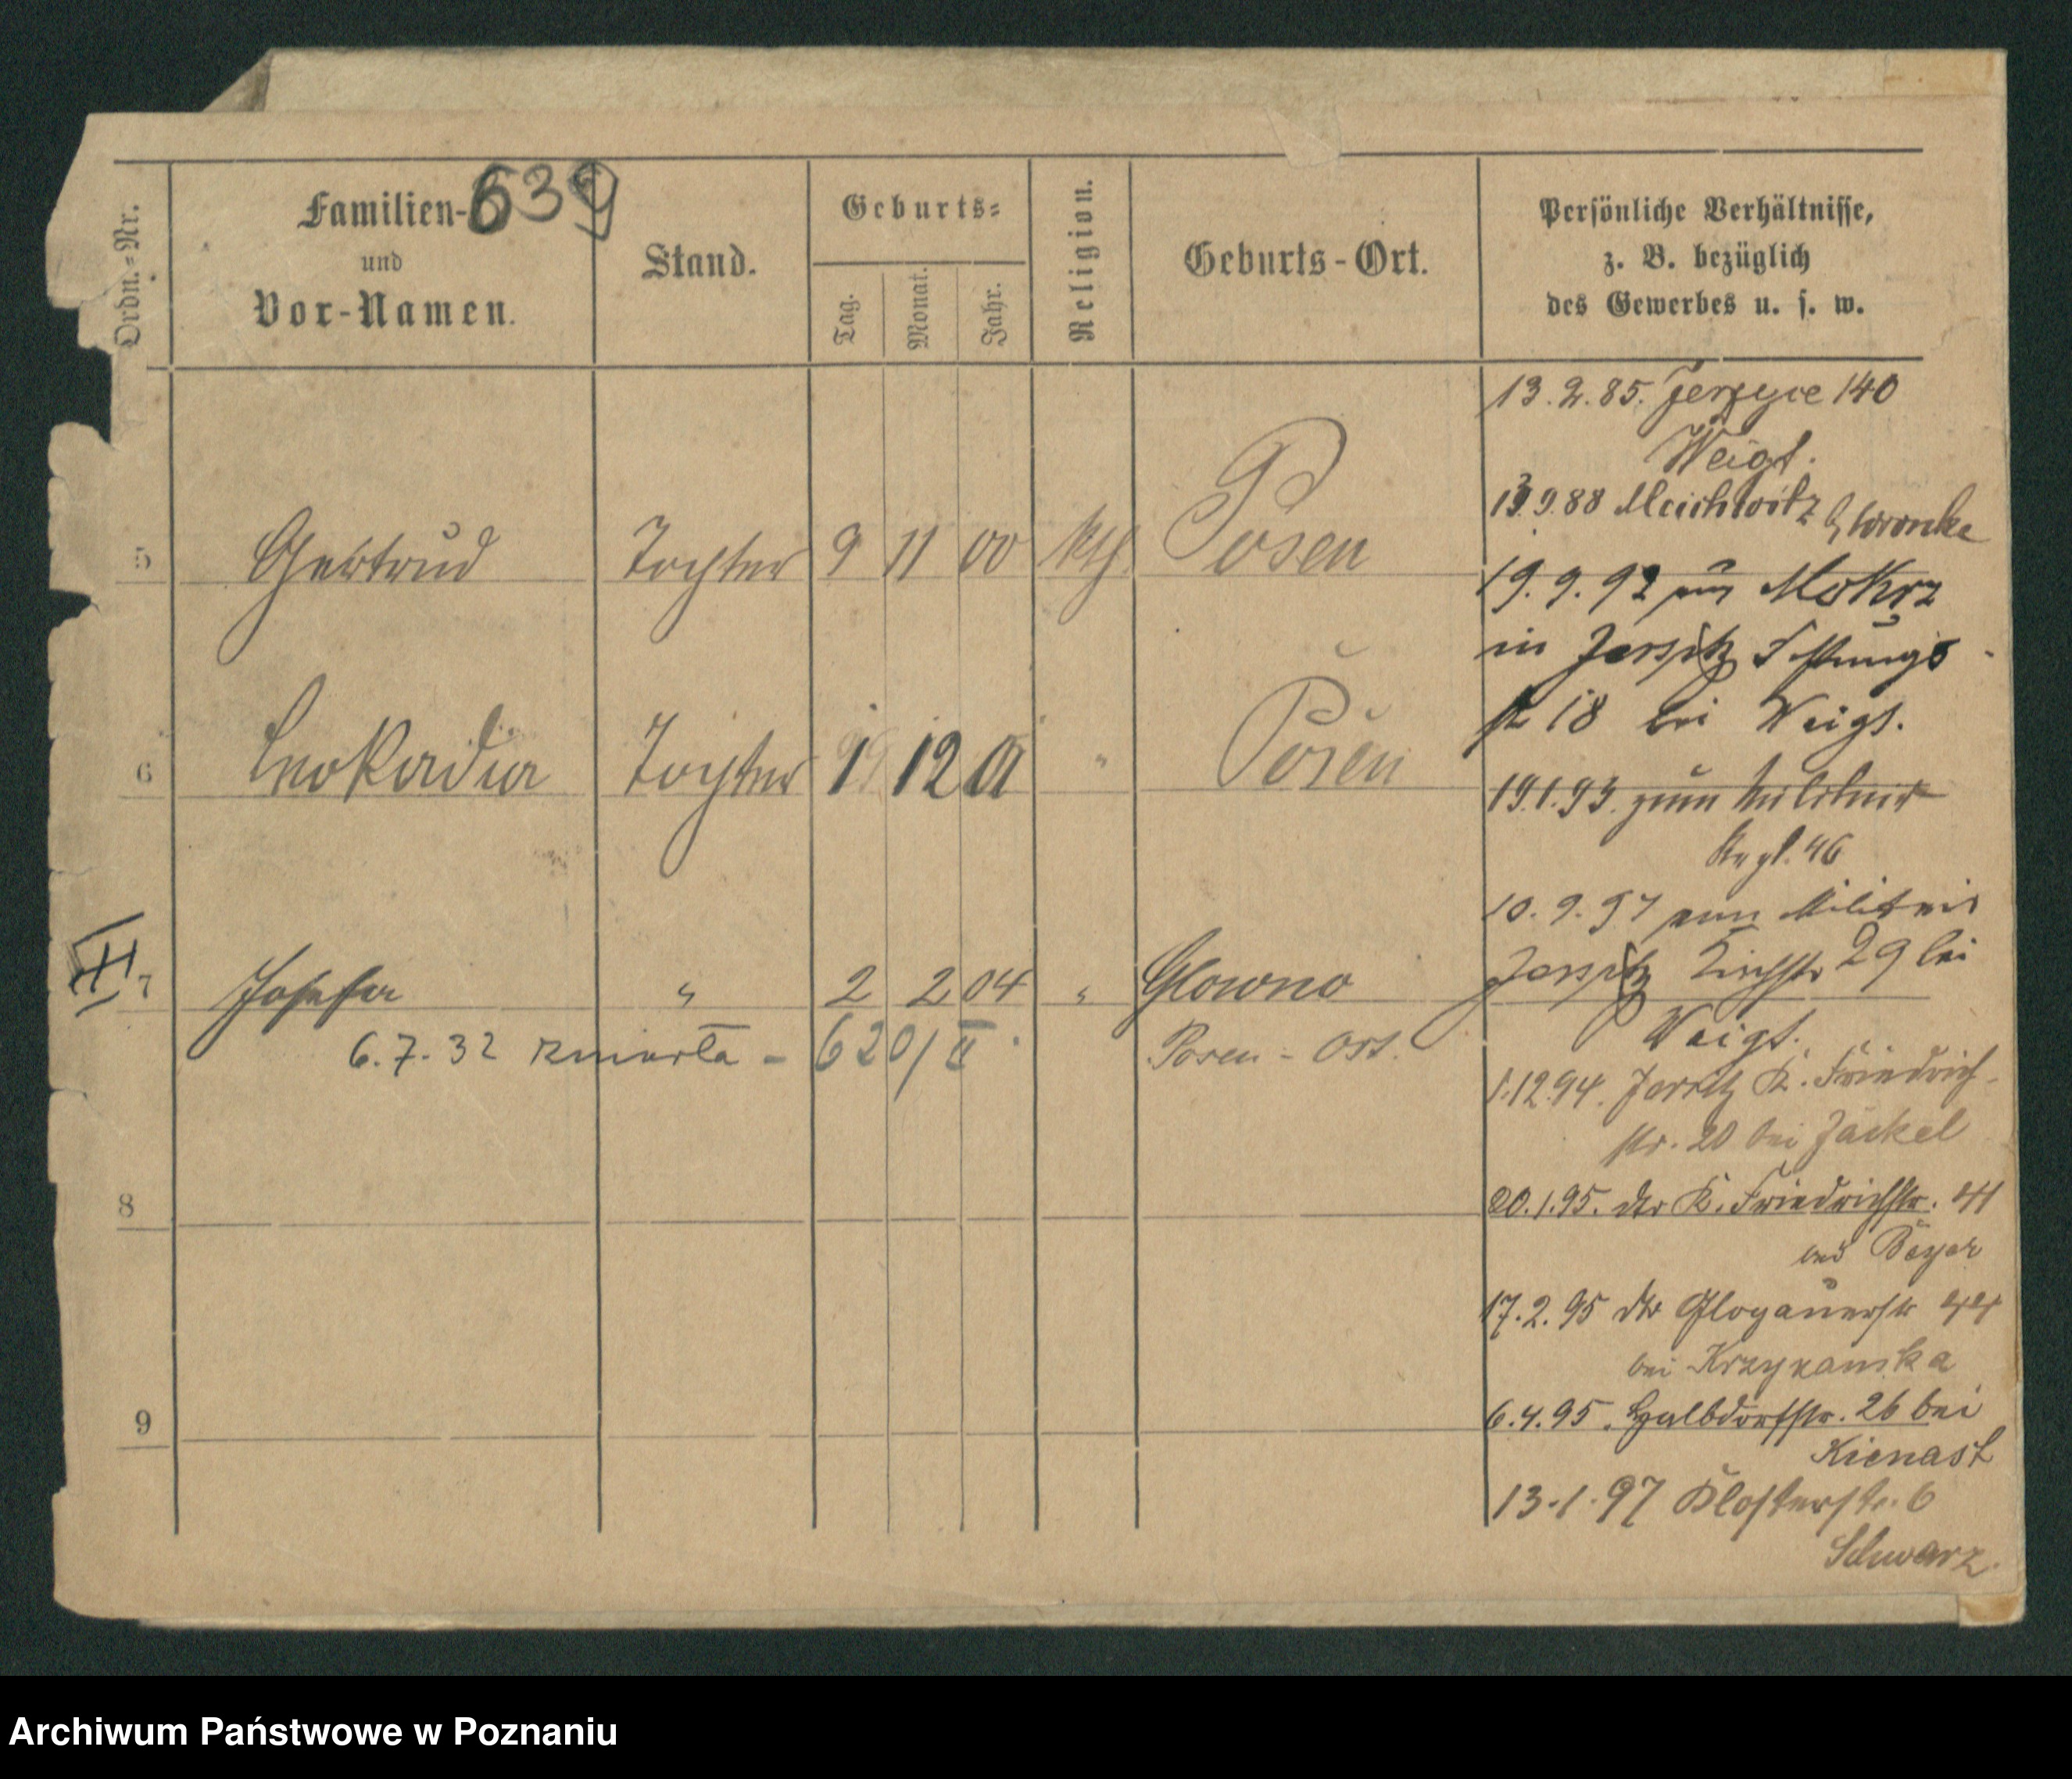 639
Ordn.-Nr.
Familien-
und
Vor-Namen.
Stand.
Geburts-
Tag.
Monat.
Jahr.
Religion.
Geburts-Ort.
Persönliche Verhältnisse,
z. B. bezüglich
des Gewerbes u. s. w.
5 Gertrud Tochter 9 11 00 kth. Posen
6 Leokadia Tochter 1 12 01 " Posen
7 Josefa " 2 2 04 " Glowno
6.7.32 zmarła - 620/II Posen - Ost.
8
9
13.2.85. Jerzyce 140
Weigt.
13.9.88 b/Wronke
19.9.92 aus Mokrz
in Jersitz
18 bei Weigt.
19.1.93. zum Militair
Regt. 46
10.9.97 vom Militair
Jersitz Kirchstr 29 bei
Weigt.
1.12.94. Jersitz K. Friedrich-
str. 20 bei Jäckel
20.1.95. dtr K. Friedrichstr. 41
bei Beyer
17.2.95 dtr Glogauerstr 44
bei Krzykanska
6.4.95. Halbdorfstr. 26 bei
Kienast
13.1.97 Klosterstr. 6
Schwarz.
Archiwum Państwowe w Poznaniu